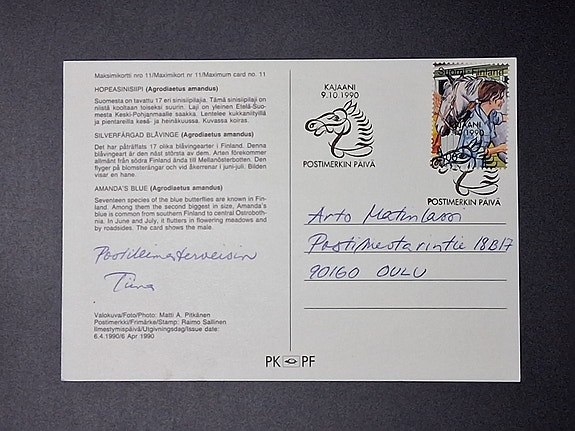 Maksimikortti nro 11/Maximikort nr 11/Maximum card no. 11
HOPEASINISIIPI (Agrodiaetus amandus)
Suomesta on tavattu 17 eri sinisiipilajia. Tämä sinisiipi on
niistä kooltaan toiseksi suurin. Laji on yleinen Etelä-Suo-
mesta Keski-Pohjanmaalle saakka. Lentelee kukkaniityillä
ja pientareilla kesä- ja heinäkuussa. Kuvassa koiras.
SILVERFÄRGAD BLÅVINGE (Agrodiaetus amandus)
Det har påträffats 17 olika blåvingearter i Finland. Denna
blåvingeart är den näst största av dem. Arten förekommer
allmänt från södra Finland ända till Mellanösterbotten. Den
flyger på blomsterängar och vid åkerrenar i juni-juli. Bilden
visar en hane.
AMANDA'S BLUE (Agrodiaetus amandus)
Seventeen species of the blue butterflies are known in Fin-
land. Among them the second biggest in size, Amanda's
blue is common from southern Finland to central Ostroboth-
nia. In June and July, it flutters in flowering meadows and
by roadsides. The card shows the male.
Postileimaterveisin
Tiina
Valokuva/Foto/Photo: Matti A. Pitkänen
Postimerkki/Frimärke/Stamp: Raimo Sallinen
Ilmestymispäivä/Utgivningsdag/Issue date:
6.4.1990/6 Apr 1990
PK PF
KAJAANI
9.10.1990
POSTIMERKIN PÄIVÄ
Suomi Finland
POSTIMERKIN PÄIVÄ
Arto Matinlassi
Postimestarintie 18B17
90160 OULU